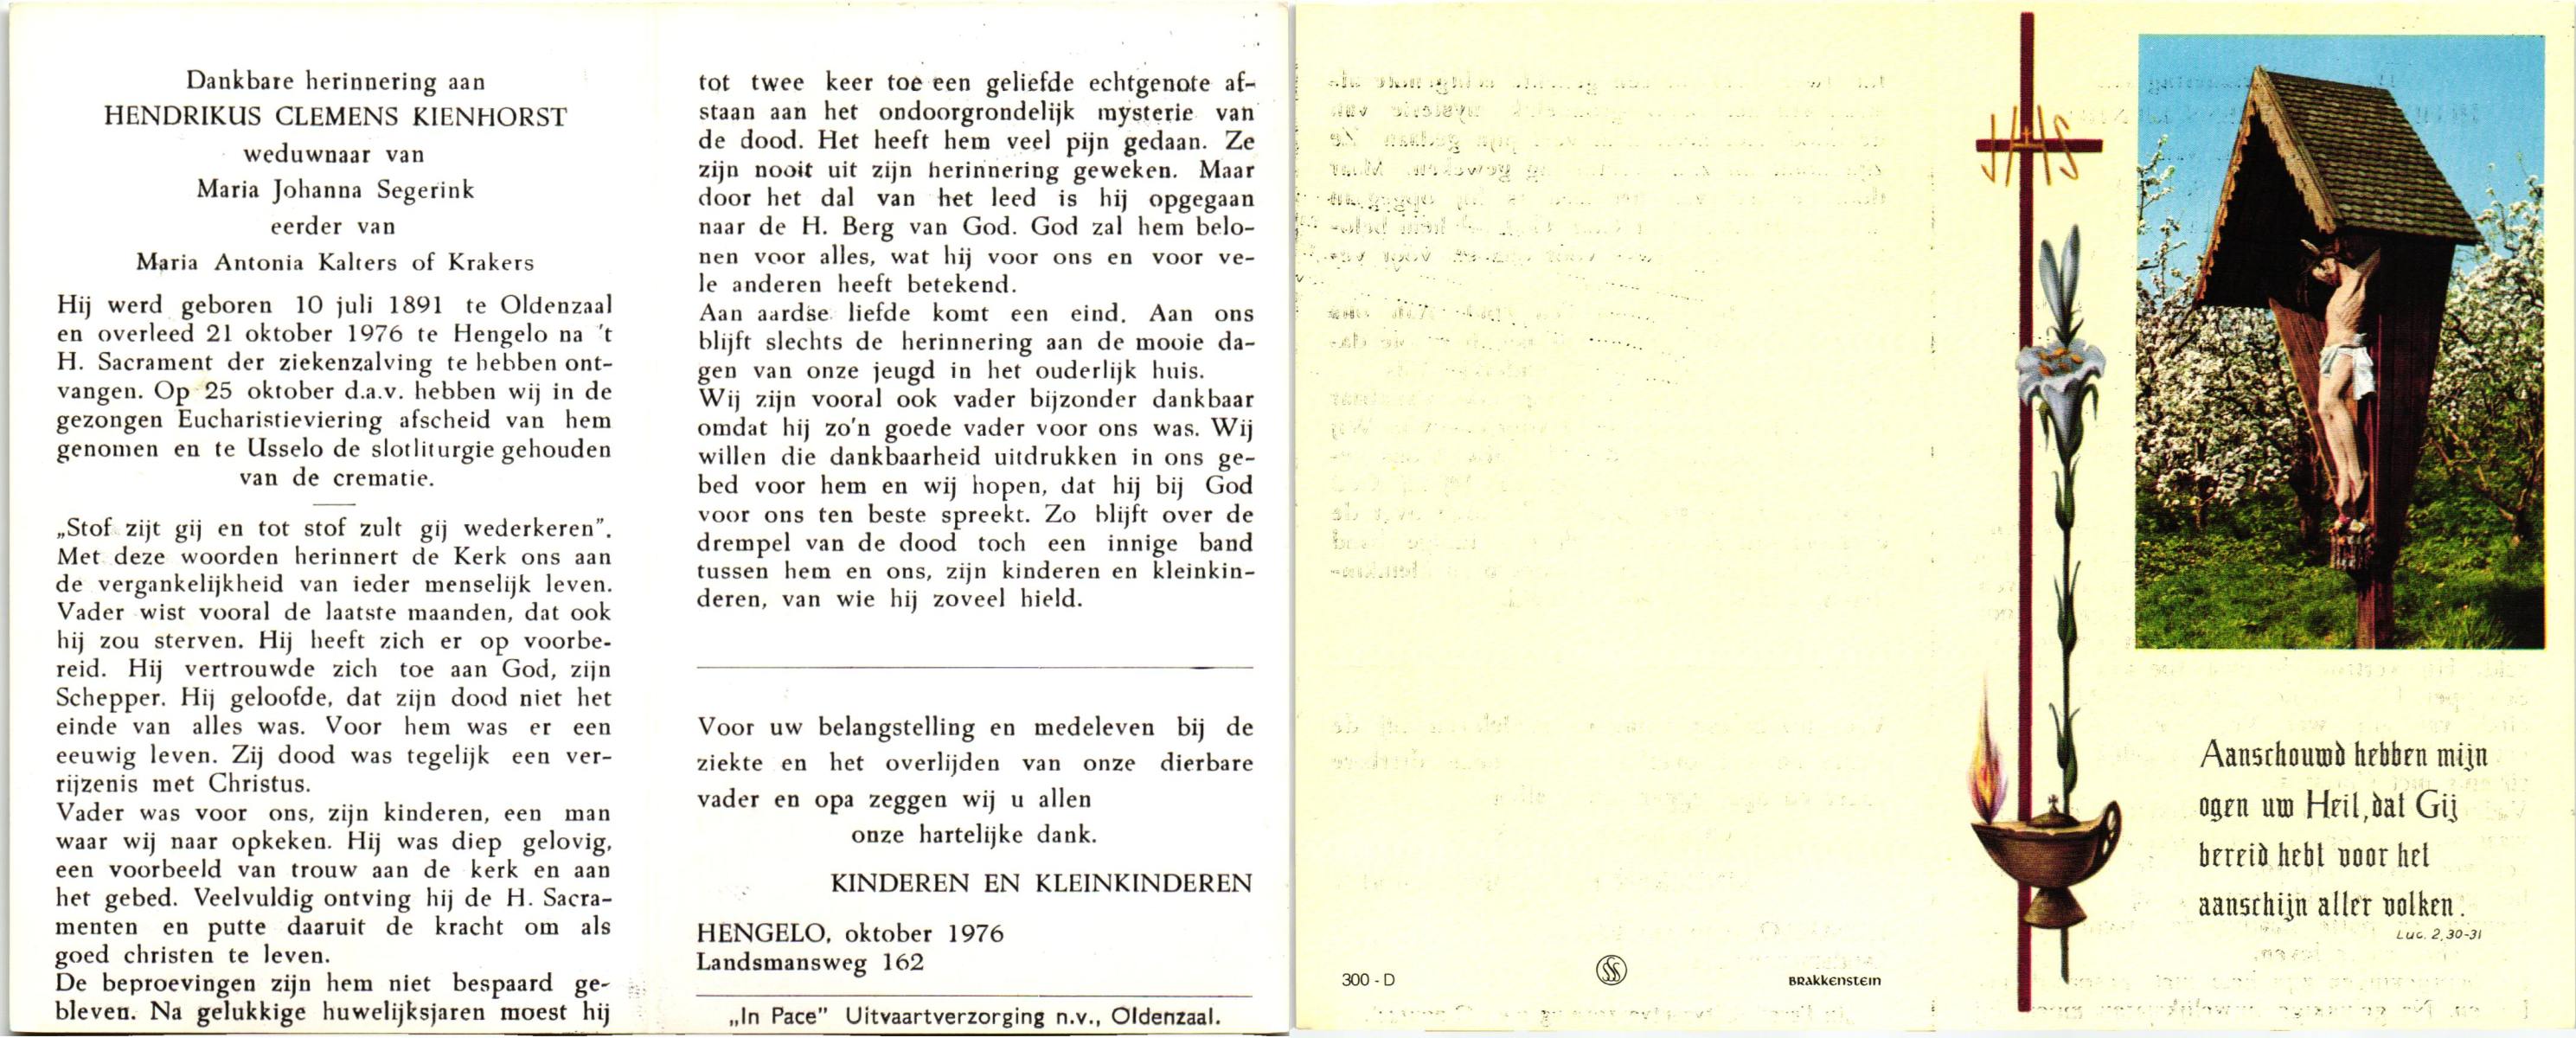 Dankbare herinnering aan
HENDRIKUS CLEMENS KIENHORST
weduwnaar van
Maria Johanna Segerink
eerder van
Maria Antonia Kalters of Krakers
Hij werd geboren 10 juli 1891 te Oldenzaal
en overleed 21 oktober 1976 te Hengelo na 't
H. Sacrament der ziekenzalving te hebben ont-
vangen. Op 25 oktober d.a.v. hebben wij in de
gezongen Eucharistieviering afscheid van hem
genomen en te Usselo de slotliturgie gehouden
van de crematie.
„Stof zijt gij en tot stof zult gij wederkeren”.
Met deze woorden herinnert de Kerk ons aan
de vergankelijkheid van ieder menselijk leven.
Vader wist vooral de laatste maanden, dat ook
hij zou sterven. Hij heeft zich er op voorbe-
reid. Hij vertrouwde zich toe aan God, zijn
Schepper. Hij geloofde, dat zijn dood niet het
einde van alles was. Voor hem was er een
eeuwig leven. Zij dood was tegelijk een ver-
rijzenis met Christus.
Vader was voor ons, zijn kinderen, een man
waar wij naar opkeken. Hij was diep gelovig,
een voorbeeld van trouw aan de kerk en aan
het gebed. Veelvuldig ontving hij de H. Sacra-
menten en putte daaruit de kracht om als
goed christen te leven.
De beproevingen zijn hem niet bespaard ge-
bleven. Na gelukkige huwelijksjaren moest hij
tot twee keer toe een geliefde echtgenote af-
staan aan het ondoorgrondelijk mysterie van
de dood. Het heeft hem veel pijn gedaan. Ze
zijn nooit uit zijn herinnering geweken. Maar
door het dal van het leed is hij opgegaan
naar de H. Berg van God. God zal hem belo-
nen voor alles, wat hij voor ons en voor ve-
le anderen heeft betekend.
Aan aardse liefde komt een eind. Aan ons
blijft slechts de herinnering aan de mooie da-
gen van onze jeugd in het ouderlijk huis.
Wij zijn vooral ook vader bijzonder dankbaar
omdat hij zo'n goede vader voor ons was. Wij
willen die dankbaarheid uitdrukken in ons ge-
bed voor hem en wij hopen, dat hij bij God
voor ons ten beste spreekt. Zo blijft over de
drempel van de dood toch een innige band
tussen hem en ons, zijn kinderen en kleinkin-
deren, van wie hij zoveel hield.
Voor uw belangstelling en medeleven bij de
ziekte en het overlijden van onze dierbare
vader en opa zeggen wij u allen
onze hartelijke dank.
KINDEREN EN KLEINKINDEREN
HENGELO, oktober 1976
Landsmansweg 162
„In Pace” Uitvaartverzorging n.v., Oldenzaal.
300 - D
BRAKKENSTEIN
JHS
Aanschouwd hebben mijn
ogen uw Heil, dat Gij
bereid hebt voor het
aanschijn aller volken.
Luc. 2,30-31